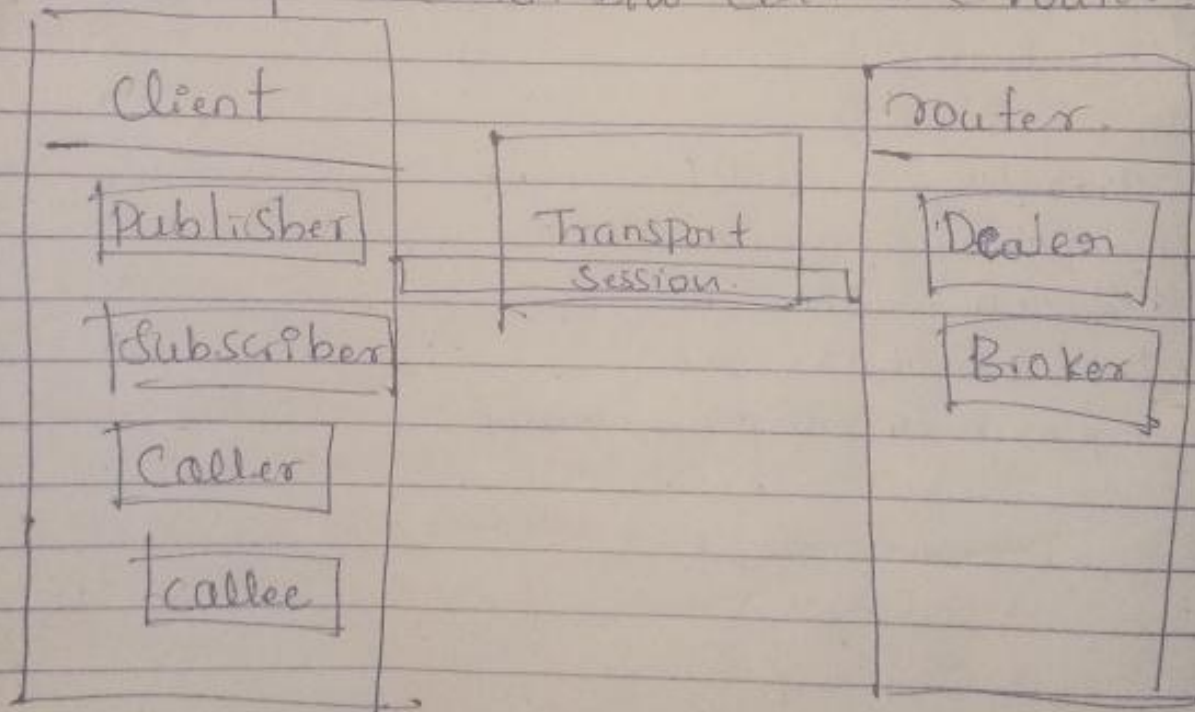 Client
Publisher
Subscriber
Caller
callee
Transport
Session.
router.
Dealer
Broker